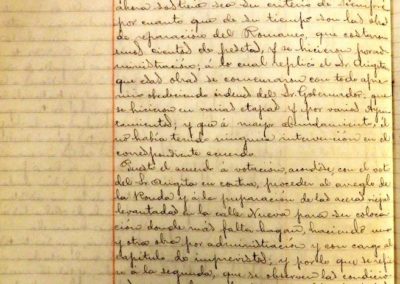 ahora sostiene sea su criterio de siempre,
por cuanto que de su tiempo son las obras
de reparación del Romance, que costaron
unas cientas de pesetas, y se hicieron por ad-
ministración; á lo cual replicó el Sr. Angita
que esas obras se comenzaron con todo apre-
mio obedeciendo órdenes del Sr. Gobernador; que
se hicieron en varias etapas y por varios Ayun-
tamientos; y que á mayor abundamiento, él
no había tenido ninguna intervención en el
correspondiente acuerdo.
Puesto el acuerdo á votación, acordóse, con el voto
del Sr. Angita en contra, proceder al arreglo de
la Ronda y á la preparación de las aceras viejas
levantadas á la calle Nueva para su coloca-
ción donde más falta hagan, haciendo una
y otra obra por administración y con cargo al
capítulo de imprevistos; y por lo que se refie-
re á la segunda, que se observen las condicio